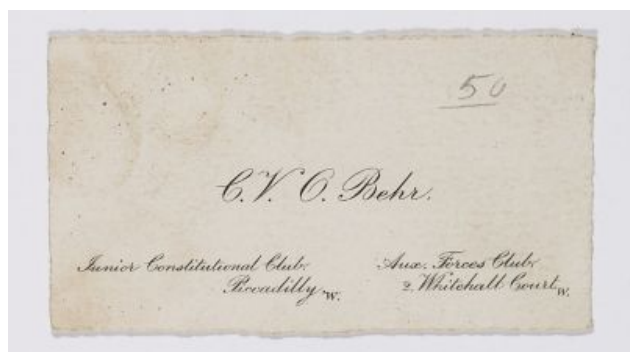 50
C. V. O. Behr.
Junior Constitutional Club.
Piccadilly W.
Aux. Forces Club
2, Whitehall Court W.